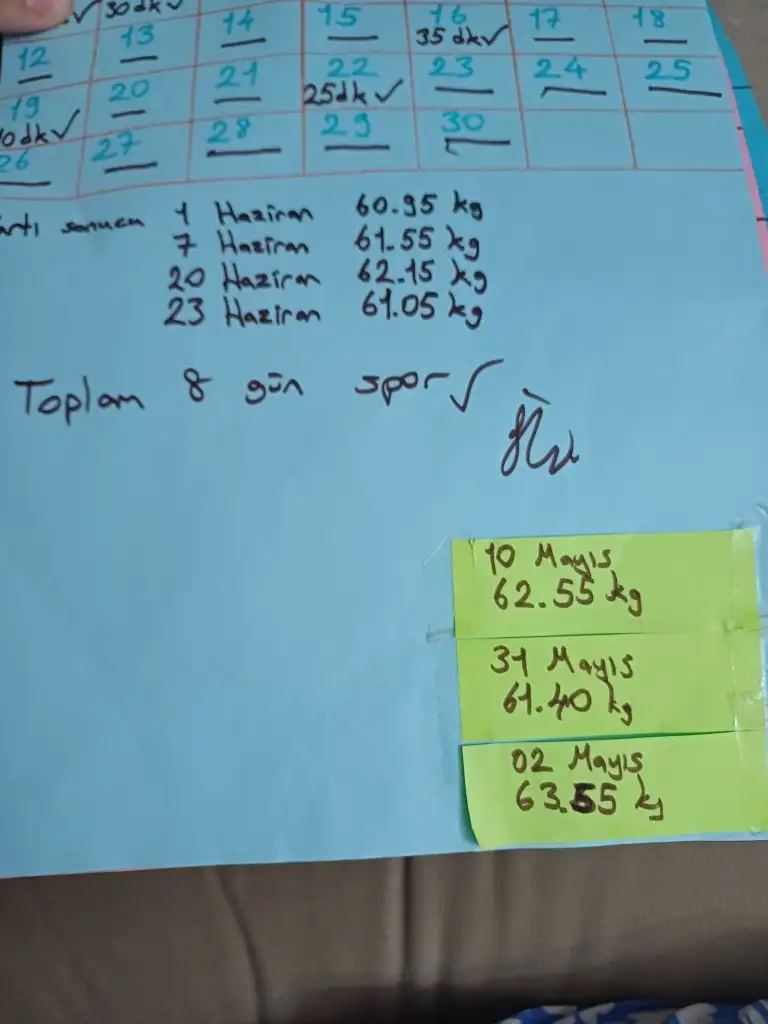 30dk✓
12 13 14 15 16 17 18
35 dk✓
19 20 21 22 23 24 25
0 dk✓ 25dk✓
26 27 28 29 30
1 Haziran 60.95 kg
7 Haziran 61.55 kg
20 Haziran 62.15 kg
23 Haziran 61.05 kg
Toplam 8 gün spor✓
10 Mayıs
62.55 kg
31 Mayıs
61.40 kg
02 Mayıs
63.55 kg